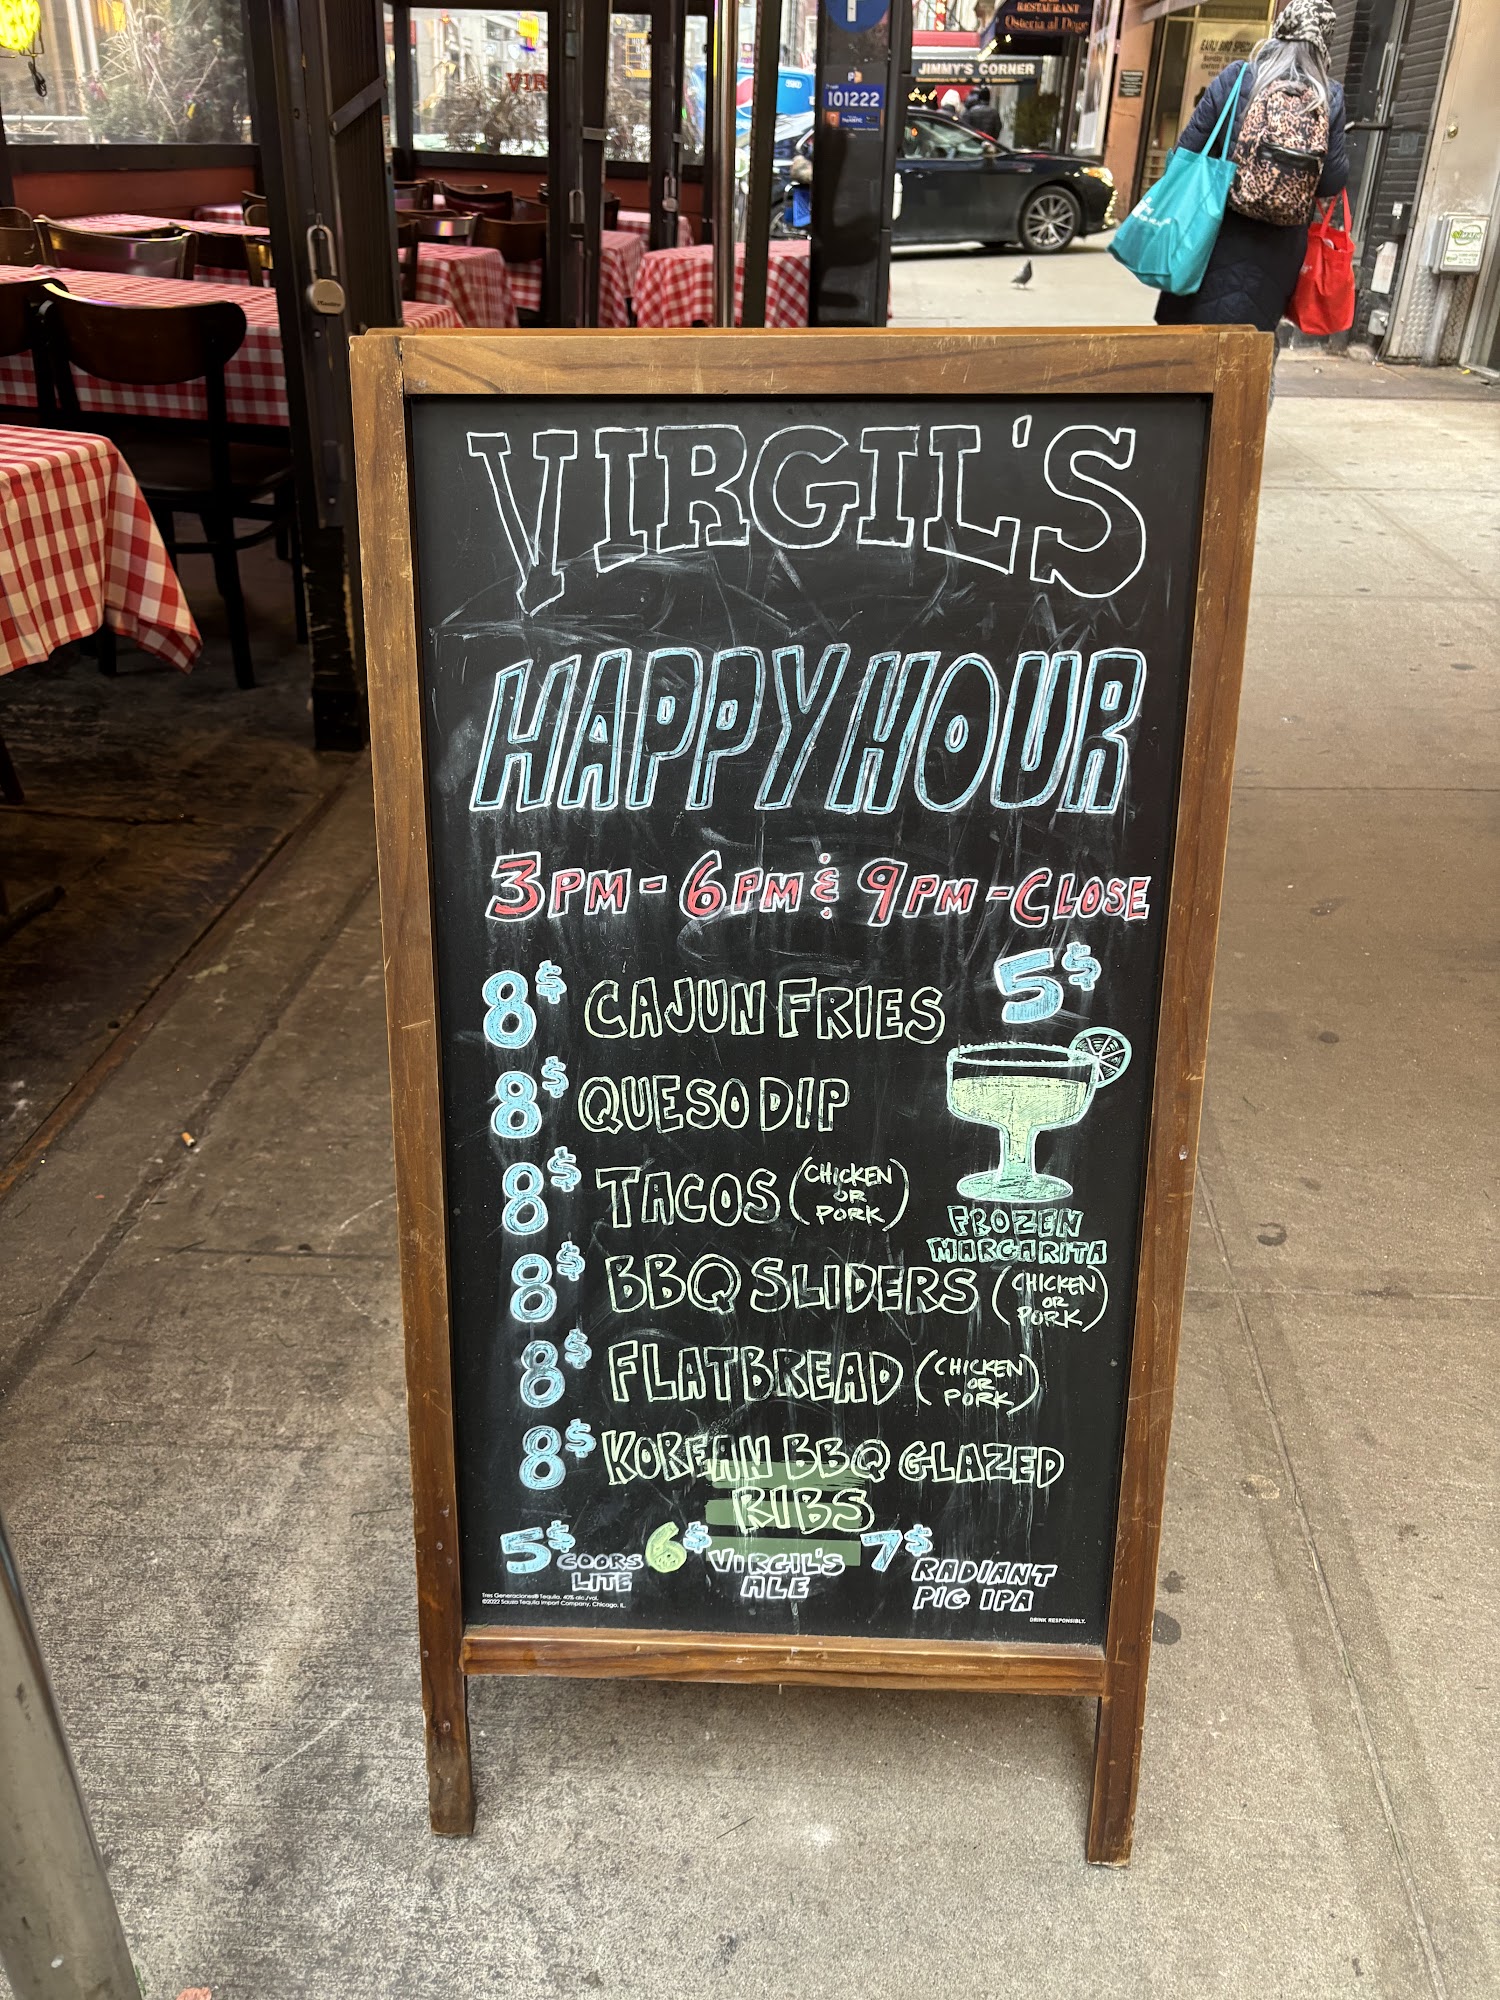 RESTAURANT
Osteria al Doge
JIMMY'S CORNER
EARLY BIRD SPECIAL
101222
VIR
VIRGIL'S
HAPPY HOUR
3PM - 6PM & 9PM - CLOSE
8$ CAJUN FRIES
5$
FROZEN
MARGARITA
8$ QUESO DIP
8$ TACOS (CHICKEN OR PORK)
8$ BBQ SLIDERS (CHICKEN OR PORK)
8$ FLATBREAD (CHICKEN OR PORK)
8$ KOREAN BBQ GLAZED
RIBS
5$ COORS LITE
6$ VIRGIL'S ALE
7$ RADIANT PIG IPA
Tres Generaciones® Tequila, 40% alc./vol.
©2022 Sauza Tequila Import Company, Chicago, IL.
DRINK RESPONSIBLY.